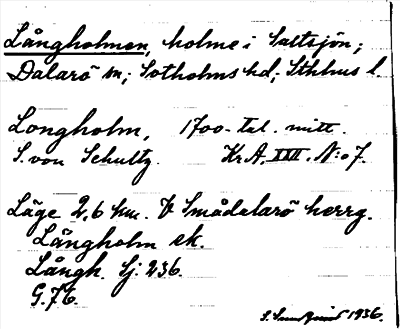 Långholmen, holme i Saltsjön;
Dalarö sn; Sotholms hd; Sthlms l.
Longholm, 1700-tal. mitt.
S. von Schultz. Kr.A. XIII. N:o 7.
Läge 2,6 km. V Smådalarö herrg.
Långholm ek.
Långh. Sj. 236.
G.76.
1936.